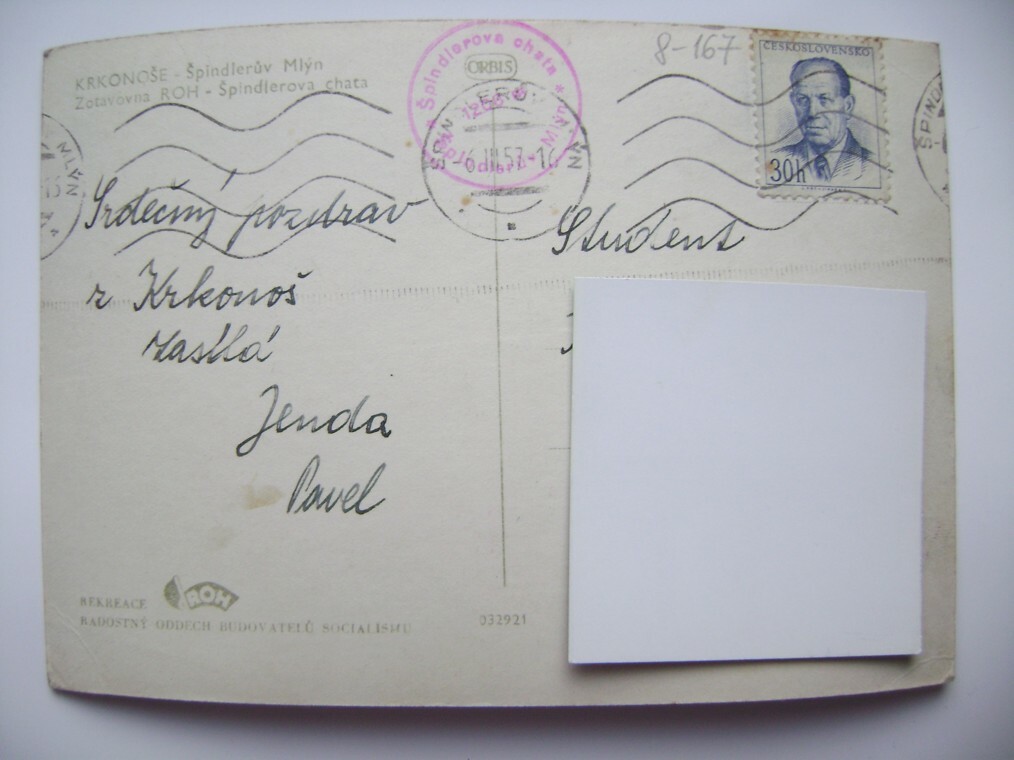 KRKONOŠE - Špindlerův Mlýn
Zotavovna ROH - Špindlerova chata
ORBIS
Špindlerova chata
8-167
ČESKOSLOVENSKO
30h
6.III.57-16
MLÝN
Srdečný pozdrav
z Krkonoš
zasílá
Jenda
Pavel
Student
REKREACE ROH
RADOSTNÝ ODDECH BUDOVATELŮ SOCIALISMU
032921